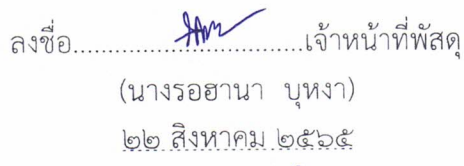 ลงชื่อ................................เจ้าหน้าที่พัสดุ
(นางรอฮานา บุหงา)
๒๒ สิงหาคม ๒๕๖๕